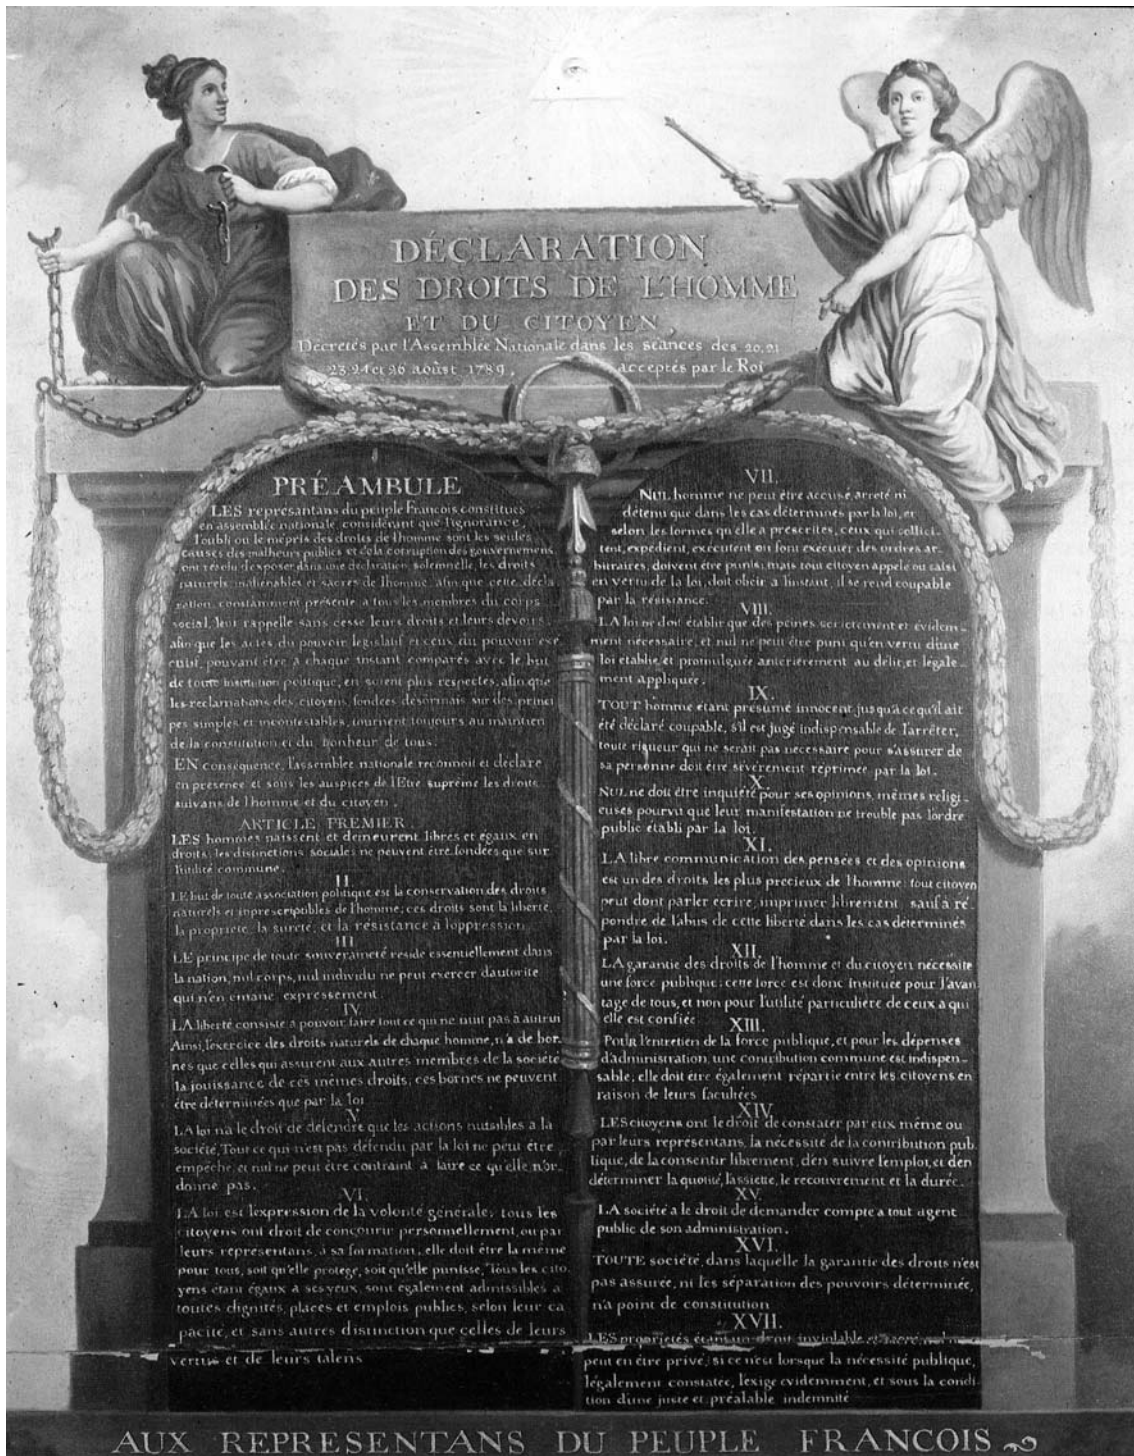 DÉCLARATION
DES DROITS DE L'HOMME
ET DU CITOYEN,
Décretés par l'Assemblée Nationale dans les séances des 20, 21
23, 24 et 26 août 1789, acceptés par le Roi
PRÉAMBULE
LES représantans du peuple François constitués
en assemblée nationale, considérant que l'ignorance
l'oubli ou le mépris des droits de l'homme sont les seules
causes des malheurs publics et de la corruption des gouvernemens
ont résolu d'exposer dans une déclaration solemnelle, les droits
naturels, inaliénables et sacrés de l'homme, afin que cette décla
ration, constamment présente a tous les membres du corps
social, leur rappelle sans cesse leurs droits et leurs devoirs,
afin que les actes du pouvoir législatif et ceux du pouvoir exé
cutif, pouvant être à chaque instant comparés avec le but
de toute institution politique, en soient plus respectés, afin que
les reclamations des citoyens, fondées désormais sur des princi
pes simples et incontestables, tournent toujours au maintien
de la constitution et du bonheur de tous.
EN conséquence, l'assemblée nationale reconnoit et déclare
en presence et sous les auspices de l'Etre suprême les droits
suivans de l'homme et du citoyen.
ARTICLE PREMIER.
LES hommes naissent et demeurent libres et égaux en
droits, les distinctions sociales ne peuvent être fondées que sur
l'utilité commune.
II.
LE but de toute association politique est la conservation des droits
naturels et inprescriptibles de l'homme; ces droits sont la liberté,
la propriété, la sureté, et la résistance à l'oppression.
III.
LE principe de toute souveraineté réside essentiellement dans
la nation, nul corps, nul individu ne peut exercer d'autorité
qui n'en emane expressement
IV.
LA liberté consiste a pouvoir faire tout ce qui ne nuit pas à autrui
Ainsi, l'exercice des droits naturels de chaque homme, n'a de bor-
nes que celles qui assurent aux autres membres de la société
la jouissance de ces mêmes droits; ces bornes ne peuvent
être déterminées que par la loi
V.
LA loi n'a le droit de défendre que les actions nuisibles à la
société. Tout ce qui n'est pas défendu par la loi ne peut être
empêché, et nul ne peut être contraint à faire ce qu'elle n'or-
donne pas.
VI.
LA loi est l'expression de la volonté générale; tous les
citoyens ont droit de concourir personnellement, ou par
leurs représentans, à sa formation; elle doit être la même
pour tous, soit qu'elle protège, soit qu'elle punisse, Tous les cito-
yens étant égaux à ses yeux, sont également admissibles à
toutes dignités, places et emplois publics, selon leur ca
pacité, et sans autres distinction que celles de leurs
vertus et de leurs talens
VII.
NUL homme ne peut être accusé, arreté ni
détenu que dans les cas déterminés par la loi, et
selon les formes qu'elle a prescrites, ceux qui sollici-
tent, expédient, exécutent ou font exécuter des ordres ar-
bitraires, doivent être punis; mais tout citoyen appelé ou saisi
en vertu de la loi, doit obéir à l'instant, il se rend coupable
par la résistance.
VIII.
LA loi ne doit établir que des peines strictement et évidem-
ment nécessaire, et nul ne peut être puni qu'en vertu d'une
loi établie et promulguée antérièrement au délit, et légale-
ment appliquée.
IX.
TOUT homme étant présumé innocent jusqu'à ce qu'il ait
été déclaré coupable, s'il est jugé indispensable de l'arrêter,
toute rigueur qui ne serait pas nécessaire pour s'assurer de
sa personne doit être sévèrement réprimée par la loi.
X.
NUL ne doit être inquiété pour ses opinions, mêmes religi-
euses pourvu que leur manifestation ne trouble pas l'ordre
public établi par la loi.
XI.
LA libre communication des pensées et des opinions
est un des droits les plus precieux de l'homme; tout citoyen
peut dont parler ecrire, imprimer librement sauf à ré-
pondre de l'abus de cette liberté dans les cas déterminés
par la loi.
XII.
LA garantie des droits de l'homme et du citoyen nécessite
une force publique; cette force est donc instituée pour l'avan
tage de tous, et non pour l'utilité particulière de ceux a qui
elle est confiée.
XIII.
POUR l'entretien de la force publique, et pour les dépenses
d'administration, une contribution commune est indispen-
sable; elle doit être également répartie entre les citoyens en
raison de leurs facultées
XIV.
LES citoyens ont le droit de constater par eux même ou
par leurs représentans, la nécessité de la contribution pub-
lique, de la consentir librement, d'en suivre l'emploi, et d'en
déterminer la quotité, l'assiette, le recouvrement et la durée.
XV.
LA société a le droit de demander compte a tout agent
public de son administration.
XVI.
TOUTE société, dans laquelle la garantie des droits n'est
pas assurée, ni les séparation des pouvoirs déterminée,
n'a point de constitution
XVII.
LES propriétés étant un droit inviolable et sacré, nul ne
peut en être privé, si ce n'est lorsque la nécessité publique,
légalement constatée, l'exige evidemment, et sous la condi
tion d'une juste et préalable indemnité
AUX REPRESENTANS DU PEUPLE FRANCOIS